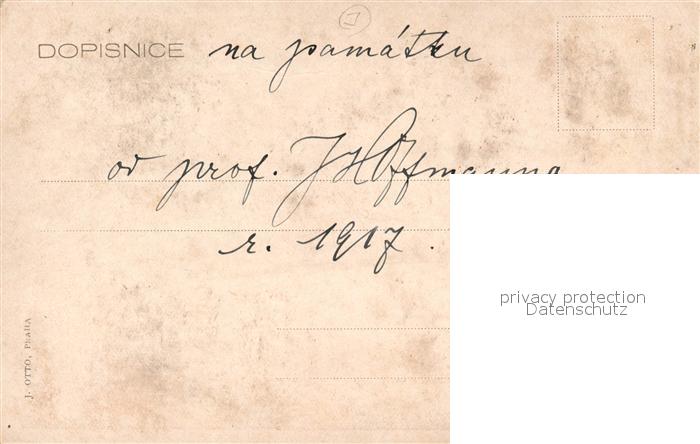 DOPISNICE na památku
od prof. J Hoffmanna
r. 1917.
J. OTTO, PRAHA
privacy protection
Datenschutz